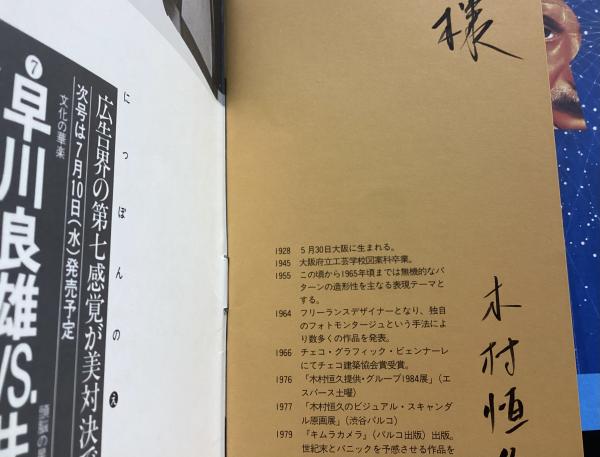 様
1928 5月30日大阪に生まれる。
1945 大阪府立工芸学校図案科卒業。
1955 この頃から1965年頃までは無機的なパ
ターンの造形性を主なる表現テーマと
する。
1964 フリーランスデザイナーとなり、独自
のフォトモンタージュという手法によ
り数多くの作品を発表。
1966 チェコ・グラフィック・ビェンナーレ
にてチェコ建築協会賞受賞。
1976 「木村恒久提供・グループ1984展」(エ
スパース土曜)
1977 「木村恒久のビジュアル・スキャンダ
ル原画展」(渋谷パルコ)
1979 「キムラカメラ」(パルコ出版)出版。
世紀末とパニックを予感させる作品を
木村恒
にっぽんのゑ
広告界の第七感覚が美対決で
次号は7月10日(水)発売予定
文化の華楽
⑦早川良雄VS.